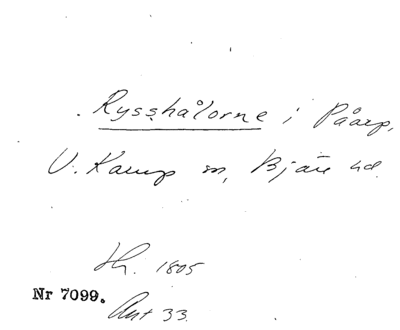 Rysshålorne i Påarp,
V. Karup sn, Bjäre hd.
Hr. 1805
Nr 7099.
Ant 33